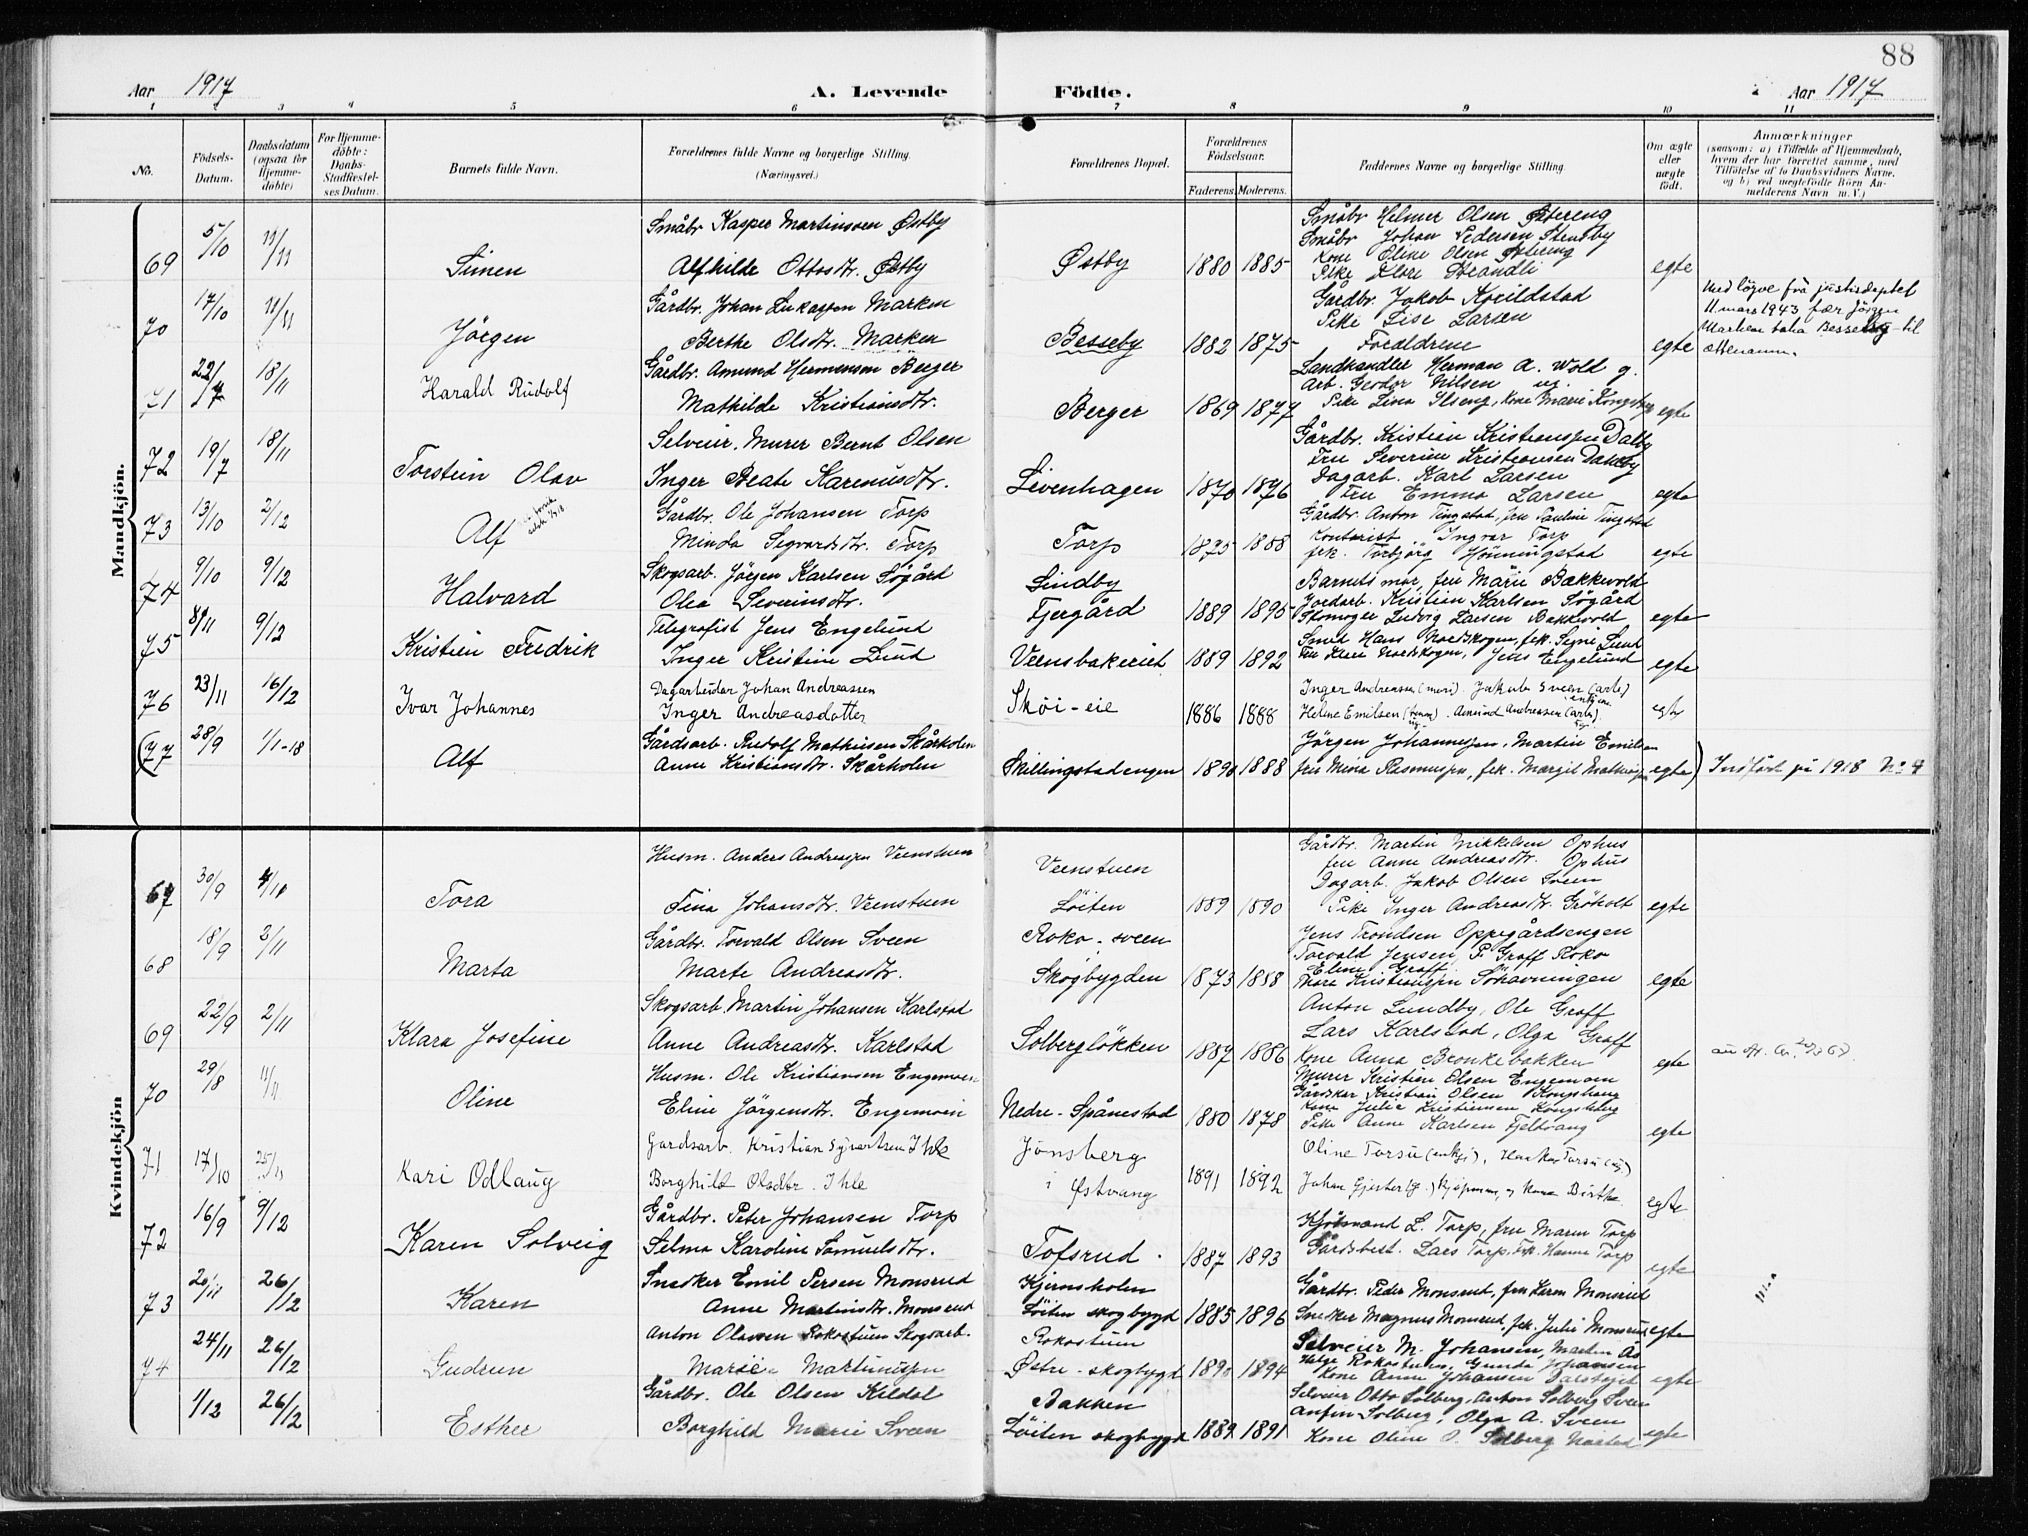 88
Aar 1917
A. Levende
Födte.
Aar 1917
1 2 3 4 5 6 7 8 9 10 11
No.
Födsels-Datum.
Daabsdatum (ogsaa for Hjemmedöbte)
For Hjemmedöbte: Daabs-Stadfæstelses Datum.
Barnets fulde Navn.
Forældrenes fulde Navne og borgerlige Stilling. (Næringsvei.)
Forældrenes Bopæl.
Forældrenes Födselsaar.
Faderens. Moderens.
Faddernes Navne og borgerlige Stilling.
Om ægte eller uægte födt.
Anmærkninger
(saasom: a) i Tilfælde af Hjemmedaab, hvem der har forrettet samme, med Tilföielse af to Daabsvidners Navne, og b) ved uægtefödte Börn Anmelderens Navn m. V.)
Mandkjön.
Småbr Kasper Martinsen Østby
Småbr Helmer Olsen
Småbr Johan Pedersen Stensby
Kone Oline Olsen
69 5/10 11/11 Simen Alfhilde Ottosdtr. Østby Østby 1880 1885 Pike egte
Gårdbr. Johan Lukassen Marken
Gårdbr. Jakob
Pike Lise Larsen
70 17/10 11/11 Jörgen Berthe Olsdtr. Marken Besseby 1882 1875 Forældrene egte
Med löyve frå justisdeptet
11 mars 1943 fær Jörgen
Marken taka Besseby til
ættenamn.
Gårdbr. Amund Hermansen Berger
Landhandler Herman A. Wold g.
Arb. Georg Nilsen ug.
71 22/7 18/11 Harald Rudolf Mathilde Kristiansdtr. Berger 1869 1877 Pike Lina Ilseng, Kone Marie Kongsberg egte
Selveier. Murer Bernt Olsen
Gårdbr. Kristian Kristiansen Dalby
Fru Severine Kristiansen Dalby
Dagarb. Karl Larsen
72 19/7 18/11 Torstein Olav Inger Beate Karenusdtr. Livenhagen 1870 1876 Fru Emma Larsen egte
Gårdbr. Ole Johansen Torp
Gårdbr. Anton Tingstad, fru Pauline Tingstad
Kontorist Ingvar Torp
73 13/10 2/12 Alf Minda Sigvardsdtr. Torp Torp 1875 1888 frk. Torbjörg Hönningstad egte
Skogsarb. Jörgen Karlsen Søgård
Lindby
Barnets mor, fru Marie Bakkevold
Jordarb. Kristian Karlsen Søgård
74 9/10 9/12 Halvard Olea Severinsdtr. Fjergård 1889 1895 Skomager Ludvig Larsen Bakkevold egte
Telegrafist Jens Engelund
Smed Hans Nordskogen, frk. Signe Lund
75 8/11 9/12 Kristian Fredrik Inger Kristine Lund Veensbakeriet 1889 1892 Fru Nordskogen, Jens Engelund egte
Dagarbeider Johan Andreassen
Inger Andreassen (mor). Jakob Sveen (arb)
76 23/11 16/12 Ivar Johannes Inger Andreasdotter Skøi-eie 1886 1888 Helene Emilsen. Amund Andreassen (arb) egte
Gårdsarb. Rudolf Mathisen Skårholen
Jörgen Johannessen, Martin Emilsen
(77 28/9 1/1-18 Alf Anne Kristiansdtr. Skårholen Skillingstadengen 1890 1888 fru Mina Rasmussen, frk. Margit Mathisen egte) Indfört på 1918 No 4
Kvindekjön
Husm. Anders Andreassen Veenstuen
Veenstuen
Gårdbr. Martin Mikkelsen Ophus
fru Anne Andreasdtr. Ophus
Dagarb. Jakob Olsen Sveen
67 30/9 Tora Tina Johansdtr. Veenstuen Löiten 1889 1890 Pike Inger Andreasdtr. Gröholt egte
Gårdbr. Torvald Olsen Sveen
Roko-sveen
Jens Trondsen Oppegårdsengen
Torvald Jensen, P. Graff Roko
Eline Graff
68 18/9 2/11 Marta Marte Andreasdtr. Skogbygden 1873 1888 Kristiansen egte
Skogsarb. Martin Johansen Karlstad
Anton Lundby, Ole Graff
Lars Karlstad, Olga Graff
69 22/9 2/11 Klara Josefine Anne Andreasdtr. Karlstad Solberglökken 1887 1886 Kone Anna Bronkebakken egte
Husm. Ole Kristiansen Engemoen
Murer Kristian Olsen Engemoen
Gårdskar Kristian Olsen Kongshaug
Kone Julie Kristiansen Kongshaug
70 29/8 11/11 Oline Eline Jörgensdtr. Engemoen Nedre-Spånestad 1880 1878 Pike Anne Karlsen Fjeltvang egte
Gardsarb. Kristian Syvertsen Ihle
Jönsberg
Oline Torsu (enke), Haakon Torsu
71 17/10 25/11 Kari Odlaug Borghild Olsdtr. Ihle i Østvang 1891 1892 Johan Gjester kjöpmann, og Kone Birthe egte
Gårdbr. Peter Johansen Torp
Kjöbmand L. Torp, fru Maren Torp
72 16/9 9/12 Karen Solveig Selma Karoline Samuelsdtr. Tofsrud. 1887 1893 Gårdsbest. Lars Torp. Frk. Hanna Torp egte
Snedker Emil Persen Monsrud
Kjernsholen
Gårdbr. Peder Monsrud, fru Karen Monsrud
73 20/11 26/12 Karen Anne Martinsdtr. Monsrud Löiten skogbygd 1885 1896 Snedker Magnus Monsrud, frk. Julie Monsrud egte
Anton Olavsen Rokostuen Skogsarb.
Rokostuen
Selveier M. Johansen, Martin Ås
Helga Rokostuen, Gunda Johansen
74 24/11 26/12 Gudrun Marie Martinussen Østre-skogbygd 1890 1894 Kone Anne Johansen egte
Gårdbr. Ole Olsen Kildal
Bakken
Selveier Otto Solberg, Anton Solberg Sveen
Anfin Solberg, Olga A. Sveen
1/12 26/12 Esther Borghild Marie Sveen Löiten skogbygd 1889 1891 Kone Oline O. Solberg egte